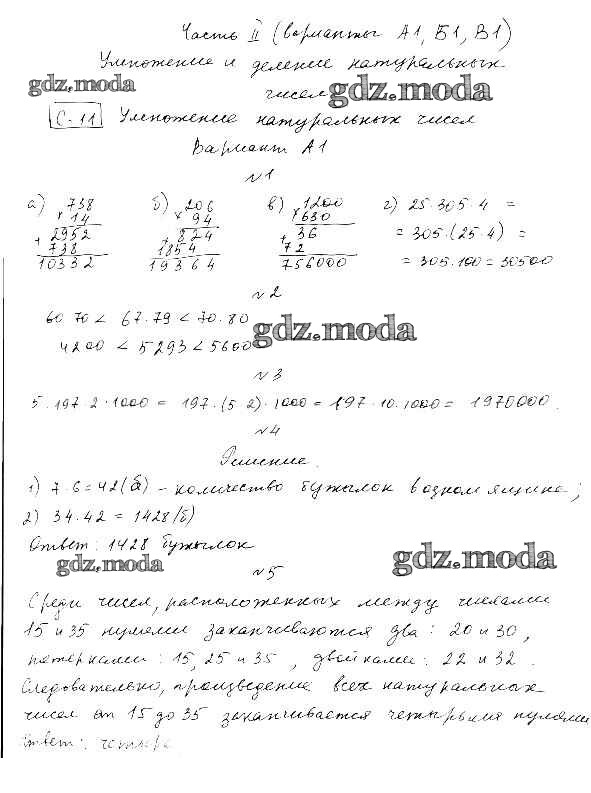 Часть II (варианты А1, Б1, В1)
Умножение и деление натуральных
gdz.moda чисел gdz.moda
С-11 Умножение натуральных чисел
Вариант А1
№1
а) 738 б) 206 в) 1200 г) 25·305·4 =
× 14 × 94 × 630 = 305·(25·4) =
2952 824 36 = 305·100 = 30500
+ 738 + 1854 + 72
10332 19364 756000
№2
60·70 < 67·79 < 70·80
gdz.moda
4200 < 5293 < 5600
№3
5·197·2·1000 = 197·(5·2)·1000 = 197·10·1000 = 1970000.
№4
Решение.
1) 7·6 = 42 (б) - количество бутылок в одном ящике;
2) 34·42 = 1428 (б)
Ответ: 1428 бутылок
gdz.moda gdz.moda
№5
Среди чисел, расположенных между числами
15 и 35 нулями заканчиваются два: 20 и 30,
пятерками: 15, 25 и 35, двойками: 22 и 32.
Следовательно, произведение всех натуральных
чисел от 15 до 35 заканчивается четырьмя нулями
Ответ: четыре